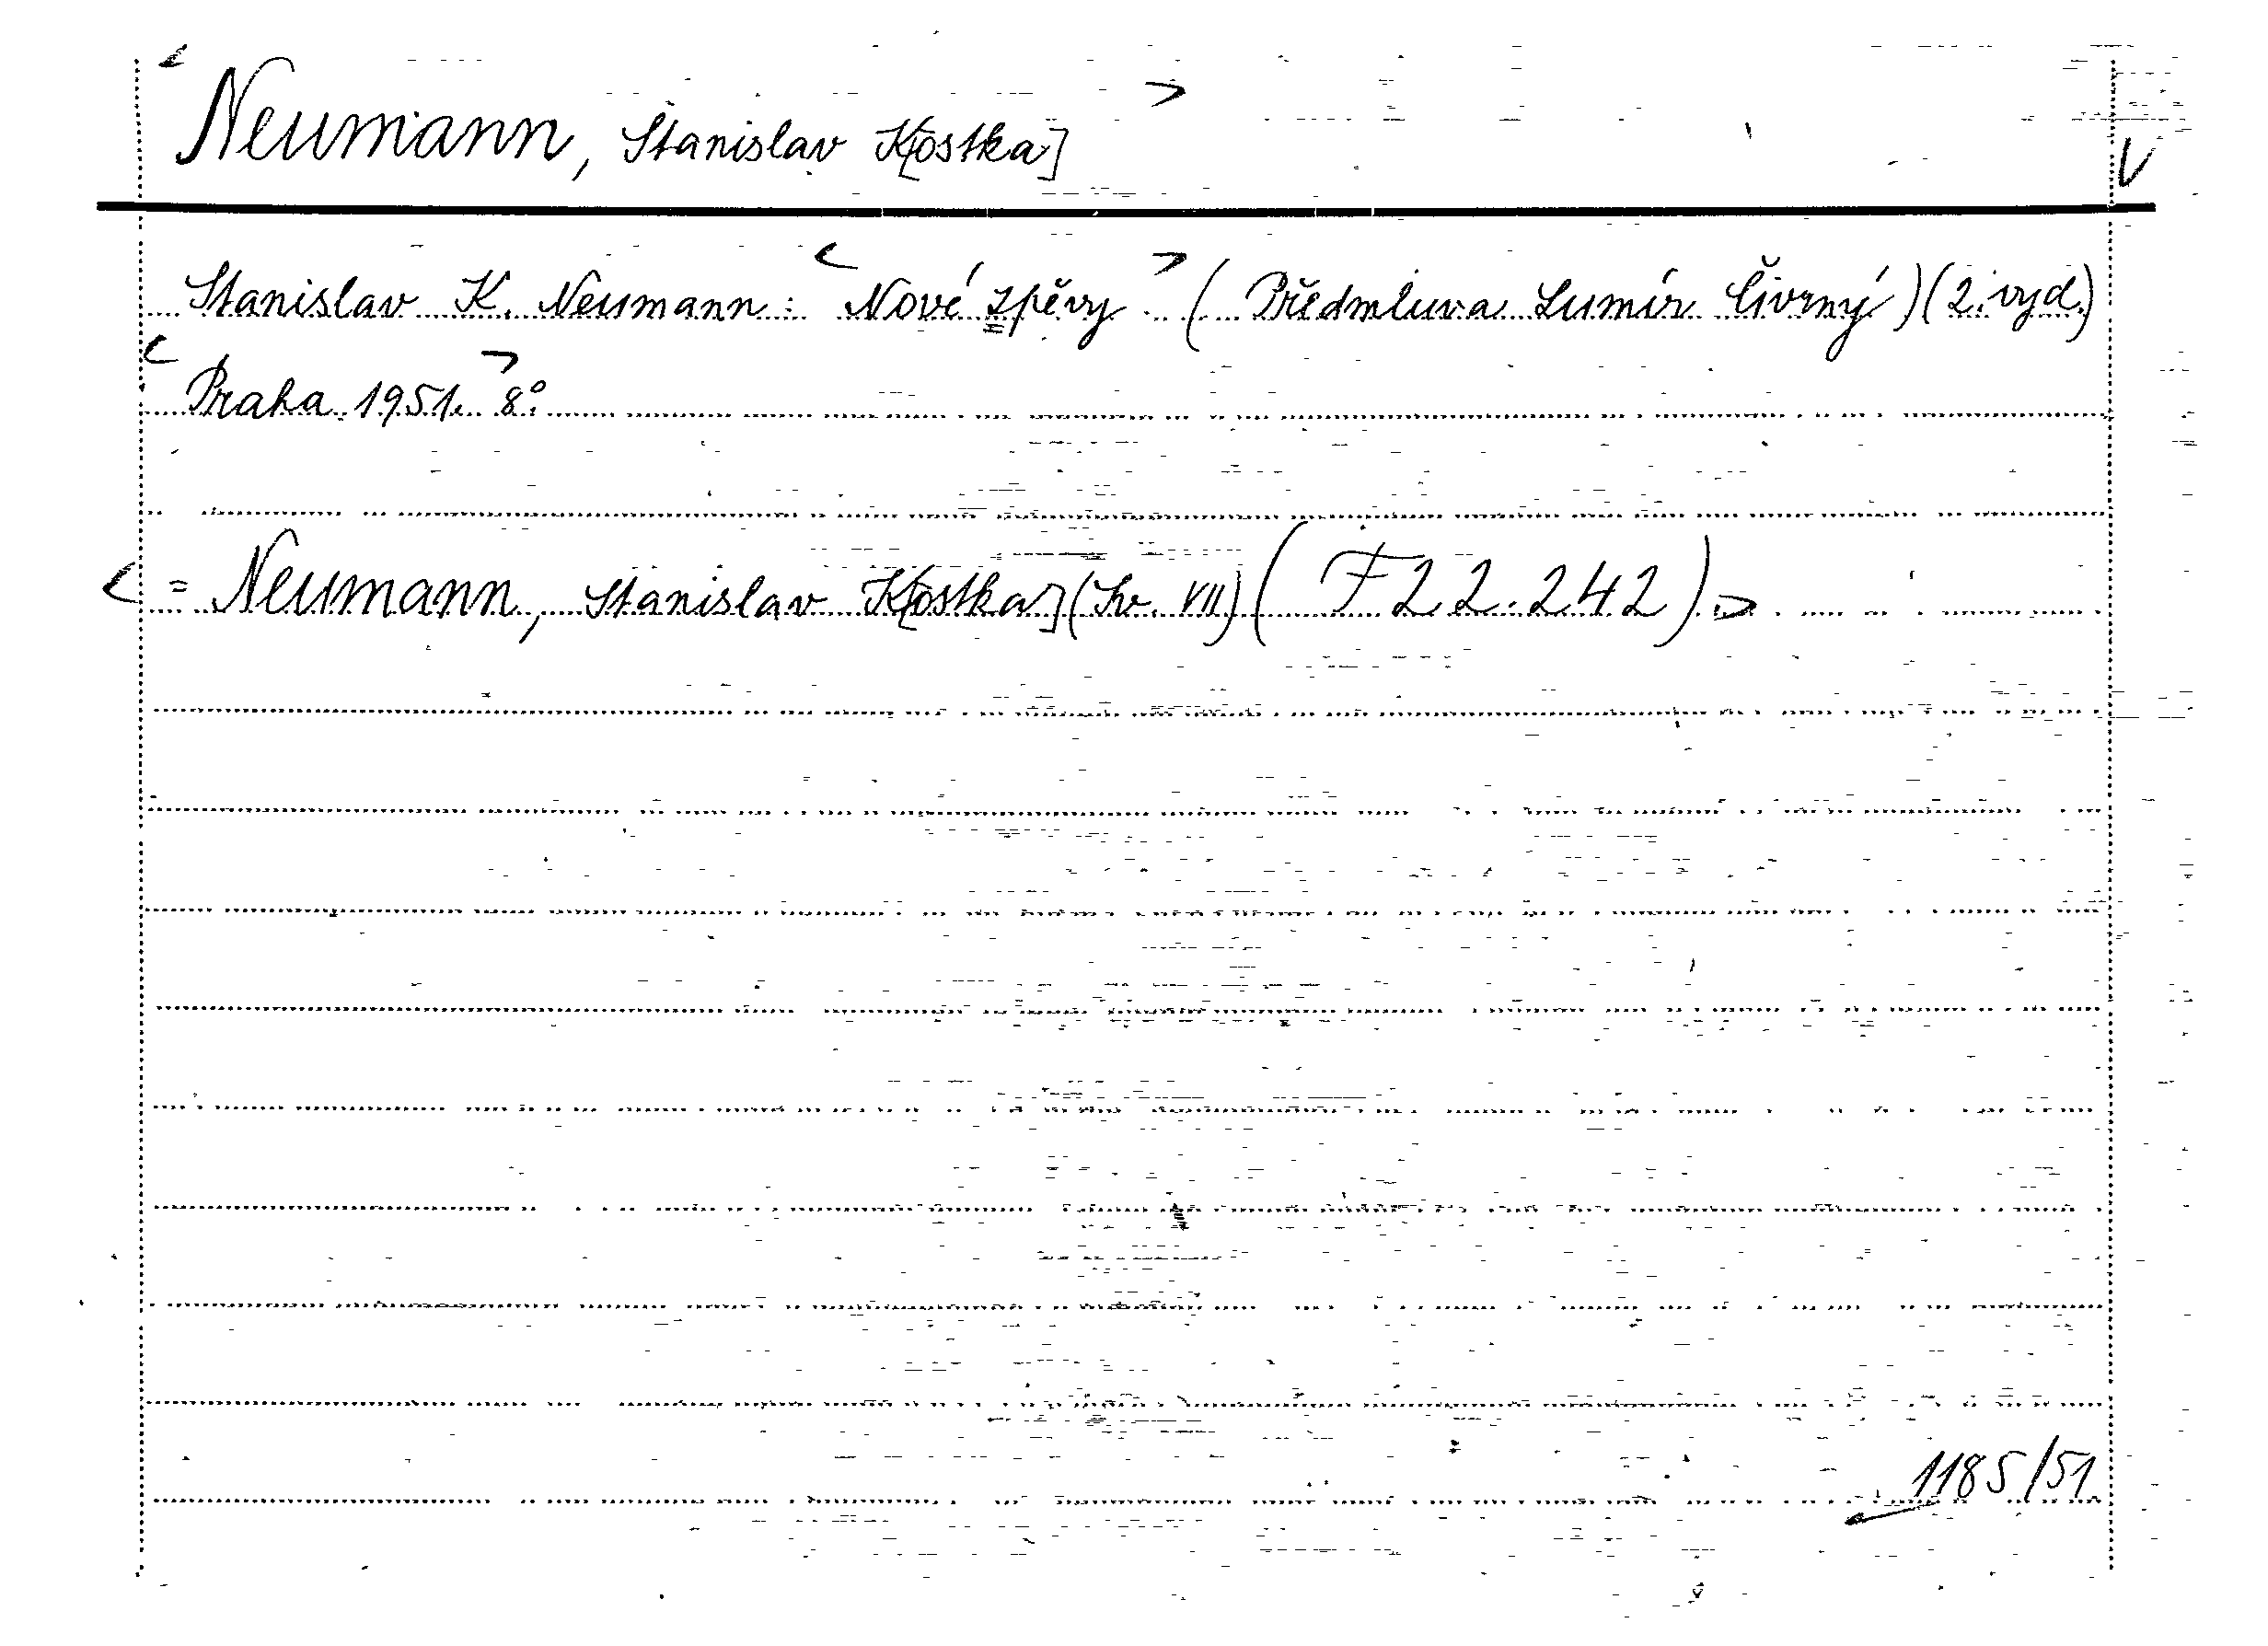 Neumann, Stanislav K[ostka] V
Stanislav K. Neumann: Nové zpěvy. (Předmluva Lumír Čivrný) (2. vyd.)
Praha 1951. 8°.
= Neumann, Stanislav K[ostka] (Sv. VII) (F 22.242).
1185/51